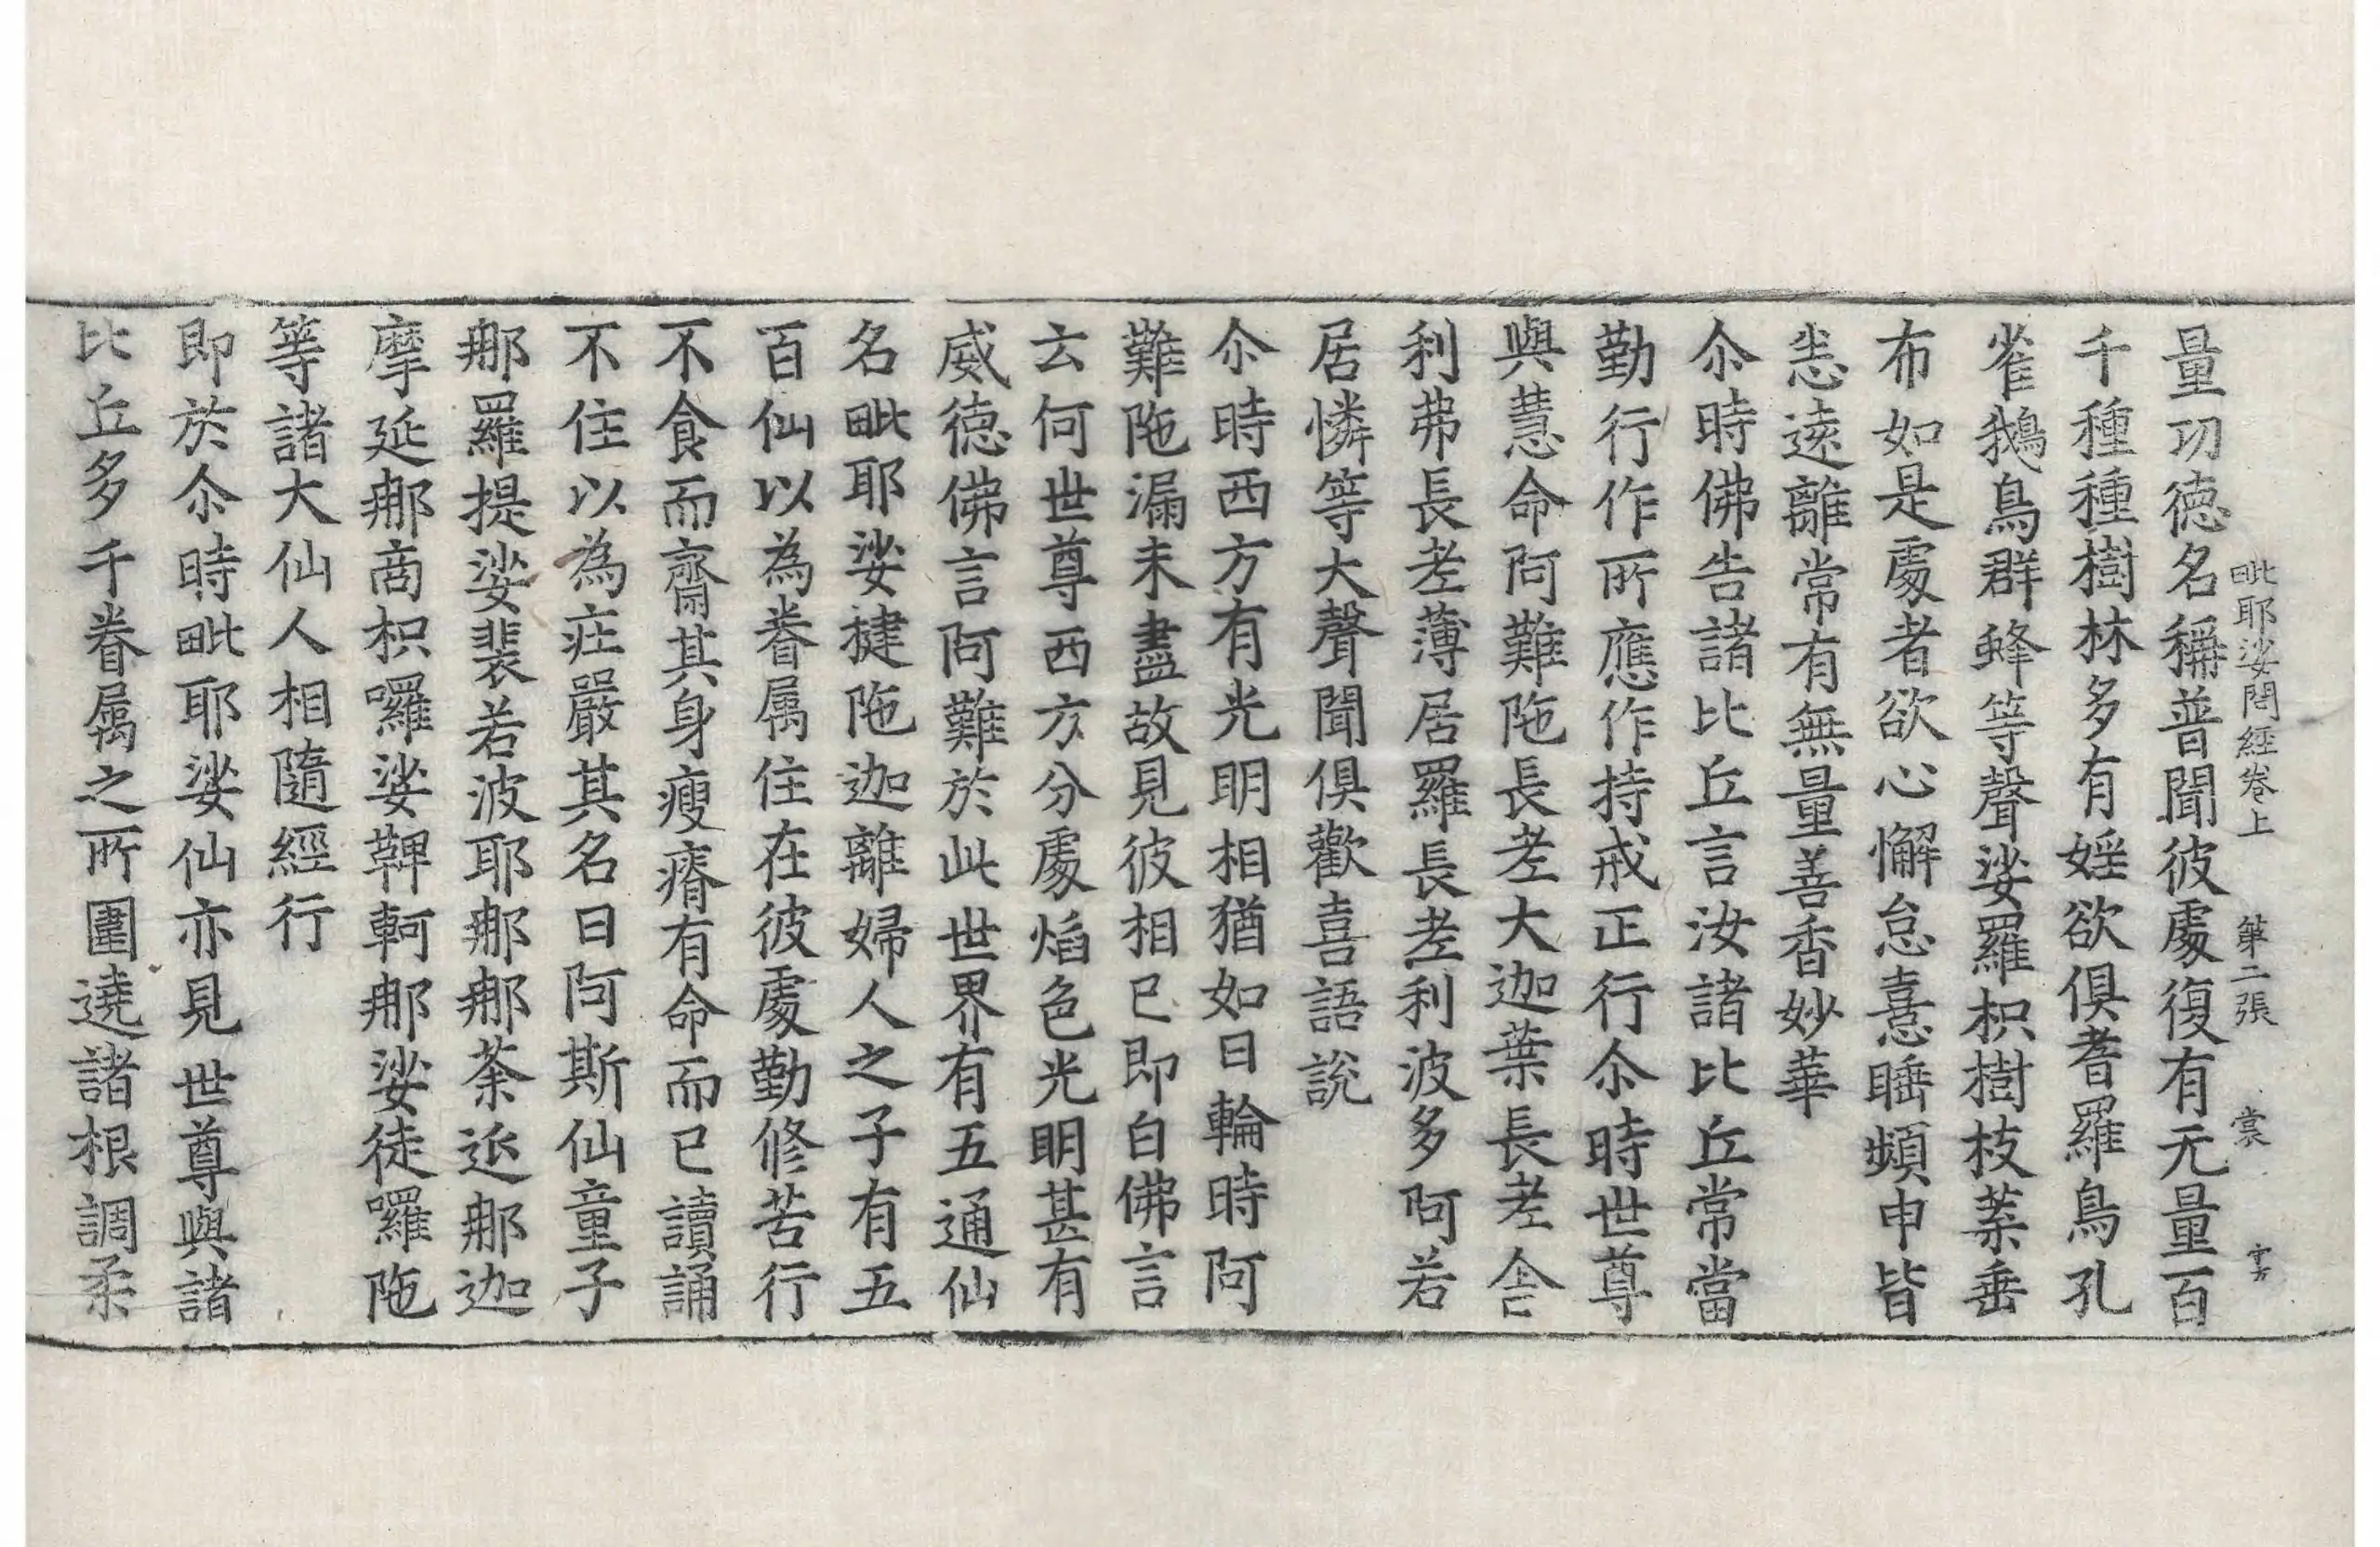 毗耶娑問經卷上　第二張　裳
量功德名稱普聞彼處復有无量百
千種種樹林多有婬欲俱耆羅鳥孔
雀鵝鳥群蜂等聲娑羅枳樹枝葉垂
布如是處者欲心懈怠憙睡頻申皆
悉遠離常有無量善香妙華
尒時佛告諸比丘言汝諸比丘常當
勤行作所應作持戒正行尒時世尊
與慧命阿難陁長老大迦葉長老舍
利弗長老薄居羅長老利波多阿若
居憐等大聲聞俱歡喜語說
尒時西方有光明相猶如日輪時阿
難陁漏未盡故見彼相已即白佛言
云何世尊西方分處焰色光明甚有
威德佛言阿難於此世界有五通仙
名毗耶娑揵陁迦離婦人之子有五
百仙以為眷属住在彼處勤修苦行
不食而齋其身瘦瘠有命而已讀誦
不住以為莊嚴其名曰阿斯仙童子
那羅提娑裴若波耶那那荼迯那迦
摩延那商枳囉娑鞞軻那娑徒囉陁
等諸大仙人相隨經行
即於尒時毗耶娑仙亦見世尊與諸
比丘多千眷属之所圍遶諸根調柔